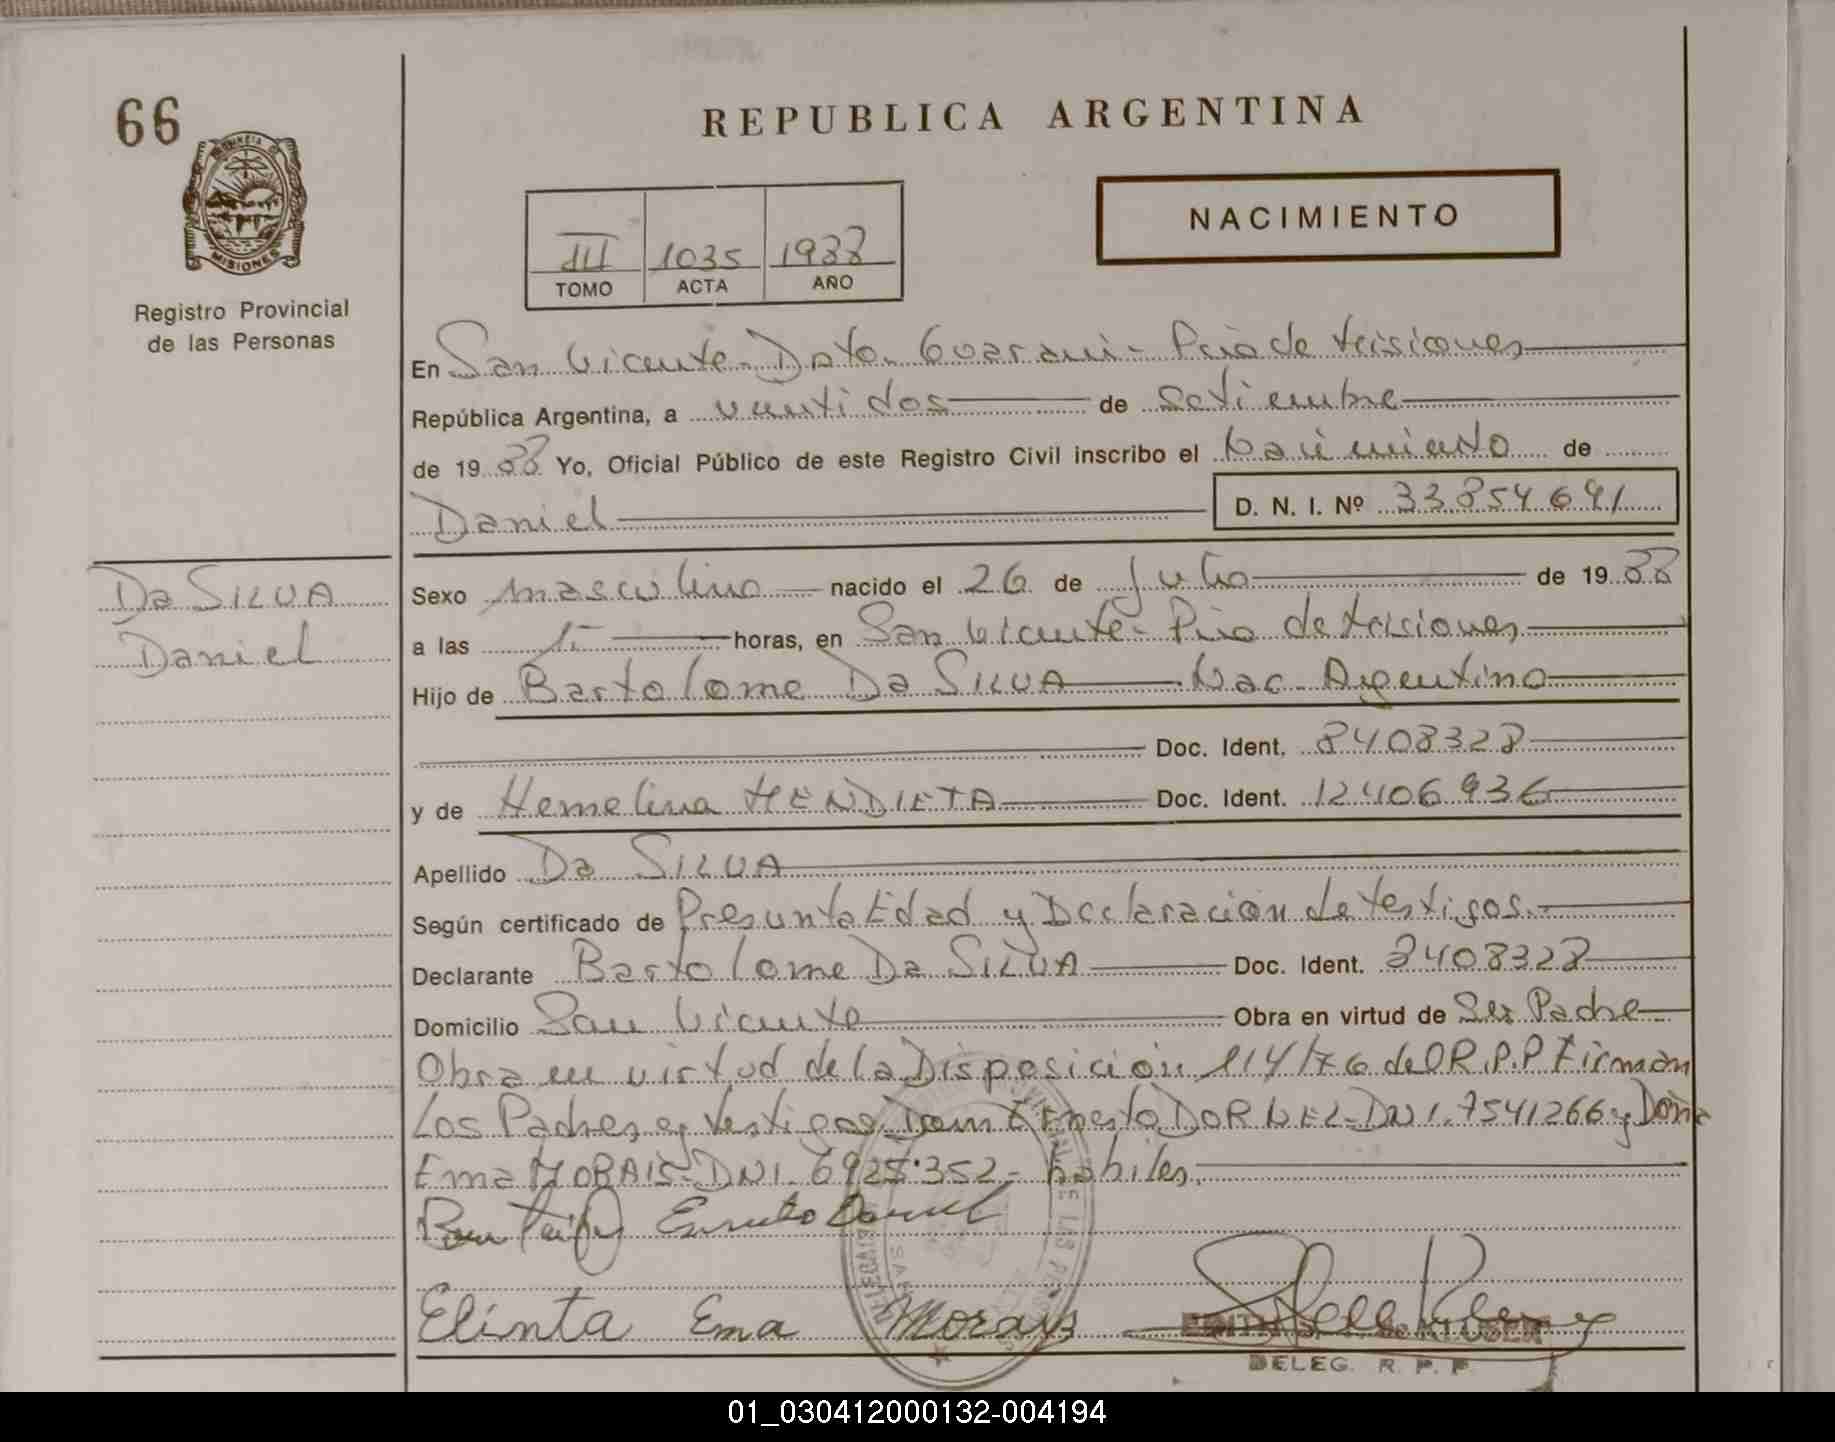 66
REPUBLICA ARGENTINA
PROVINCIA D MISIONES
NACIMIENTO
III 1035 1988
TOMO ACTA AÑO
Registro Provincial
de las Personas
En San Vicente - Dpto. Guarani - Pcia de Misiones
República Argentina, a veintidos de Setiembre
de 1988 Yo, Oficial Público de este Registro Civil inscribo el Nacimiento de
Daniel D. N. I. Nº 33854691
Da SILVA
Daniel
Sexo masculino nacido el 26 de Julio de 1988
a las 15 horas, en San Vicente - Pcia de Misiones
Hijo de Bartolome Da SILVA Nac. Argentino
Doc. Ident. 8408328
y de Hemelina MENDIETA Doc. Ident. 12406936
Apellido Da SILVA
Según certificado de Presunta Edad y Declaración de testigos.-
Declarante Bartolome Da SILVA Doc. Ident. 8408328
Domicilio San Vicente Obra en virtud de Ser Padre
Obra en virtud de la Disposición 114/76 del R.P.P Firman
Los Padres y testigos Don Ernesto DORNEL-DNI. 7541266 y Doña
Ema MORAIS-DNI. 6925.352- habiles.
Ernesto Dornel
Elinta Ema Morays
DELEG. R. P. P.
01_030412000132-004194